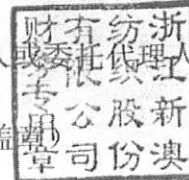 浙江新澳
纺织股份
有限公司
财务专用章
人或委托代理人
盖章)